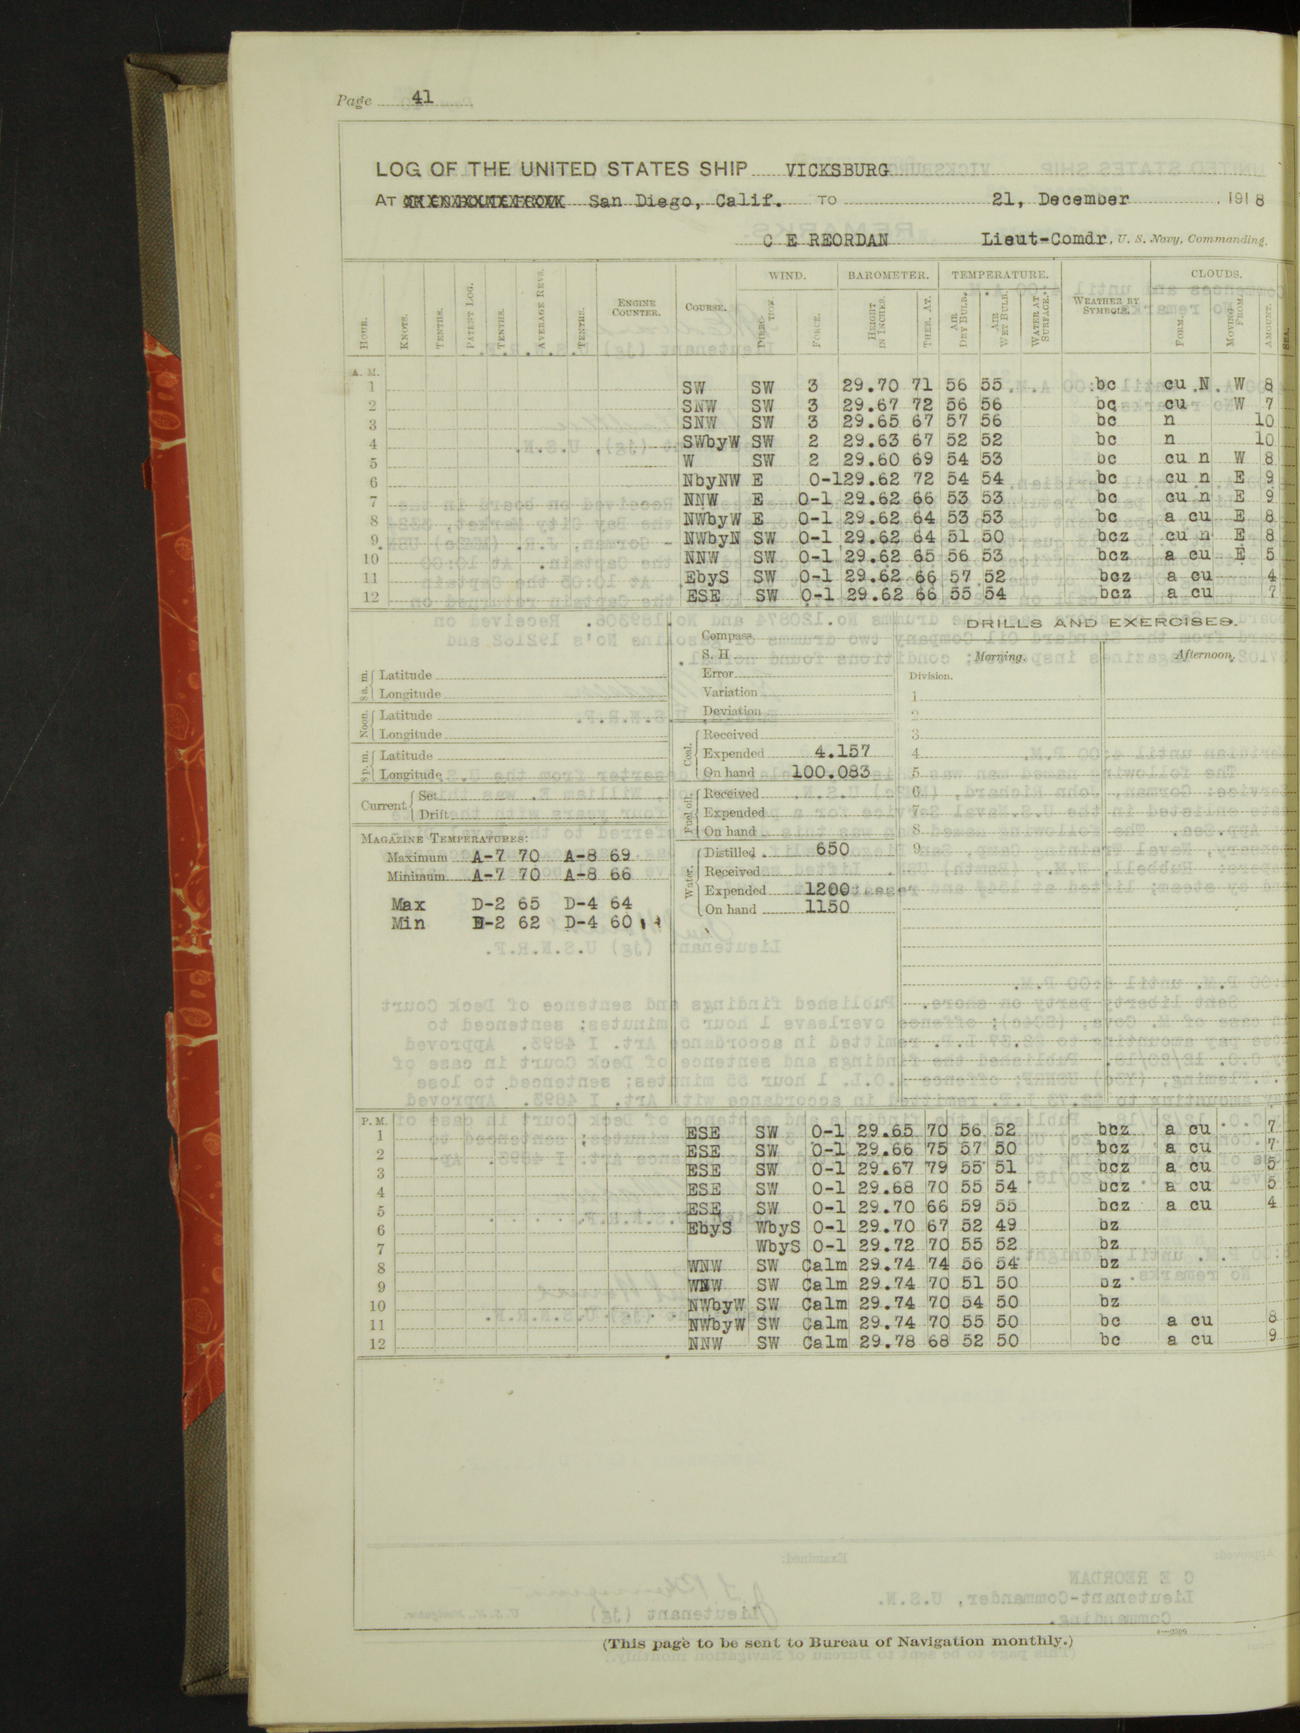 Page 41
LOG OF THE UNITED STATES SHIP VICKSBURG
AT San Diego, Calif. TO 21, December, 1918
C E REORDAN Lieut-Comdr, U. S. Navy, Commanding.
WIND. BAROMETER. TEMPERATURE. CLOUDS.
HOUR. KNOTS. TENTHS. PATENT LOG. TENTHS. AVERAGE REVS. TENTHS. ENGINE COUNTER. COURSE. DIREC-TION. FORCE. HEIGHT IN INCHES. THER. AT. AIR DRY BULB. AIR WET BULB. WATER AT SURFACE. WEATHER BY SYMBOLS. FORM. MOVING FROM. AMOUNT. SEA.
A. M.
1 SW SW 3 29.70 71 56 55 bc cu N W 8
2 SNW SW 3 29.67 72 56 56 bc cu W 7
3 SNW SW 3 29.65 67 57 56 bc n 10
4 SWbyW SW 2 29.63 67 52 52 bc n 10
5 W SW 2 29.60 69 54 53 bc cu n W 8
6 NbyNW E 0-1 29.62 72 54 54 bc cu n E 9
7 NNW E 0-1 29.62 66 53 53 bc cu n E 9
8 NWbyW E 0-1 29.62 64 53 53 bc a cu E 8
9 NWbyN SW 0-1 29.62 64 51 50 bcz cu n E 8
10 NNW SW 0-1 29.62 65 56 53 bcz a cu E 5
11 EbyS SW 0-1 29.62 66 57 52 bcz a cu 4
12 ESE SW 0-1 29.62 66 55 54 bcz a cu 7
8 a. m. Latitude
Longitude
Noon. Latitude
Longitude
8 p. m. Latitude
Longitude
Current Set
Drift
MAGAZINE TEMPERATURES:
Maximum A-7 70 A-8 69
Minimum A-7 70 A-8 66
Max D-2 65 D-4 64
Min D-2 62 D-4 60
Compass
S. H
Error
Variation
Deviation
Coal. Received
Expended 4.157
On hand 100.083
Fuel oil. Received
Expended
On hand
Water. Distilled 650
Received
Expended 1200
On hand 1150
DRILLS AND EXERCISES.
Morning. Afternoon.
Division.
1
2
3
4
5
6
7
8
9
P. M.
1 ESE SW 0-1 29.65 70 56 52 bcz a cu 7
2 ESE SW 0-1 29.66 75 57 50 bcz a cu 7
3 ESE SW 0-1 29.67 79 55 51 bcz a cu 5
4 ESE SW 0-1 29.68 70 55 54 bcz a cu 5
5 ESE SW 0-1 29.70 66 59 55 bcz a cu 4
6 EbyS WbyS 0-1 29.70 67 52 49 bz
7 WbyS 0-1 29.72 70 55 52 bz
8 WNW SW Calm 29.74 74 56 54 bz
9 WNW SW Calm 29.74 70 51 50 bz
10 NWbyW SW Calm 29.74 70 54 50 bz
11 NWbyW SW Calm 29.74 70 55 50 bc a cu 8
12 NNW SW Calm 29.78 68 52 50 bc a cu 9
(This page to be sent to Bureau of Navigation monthly.)